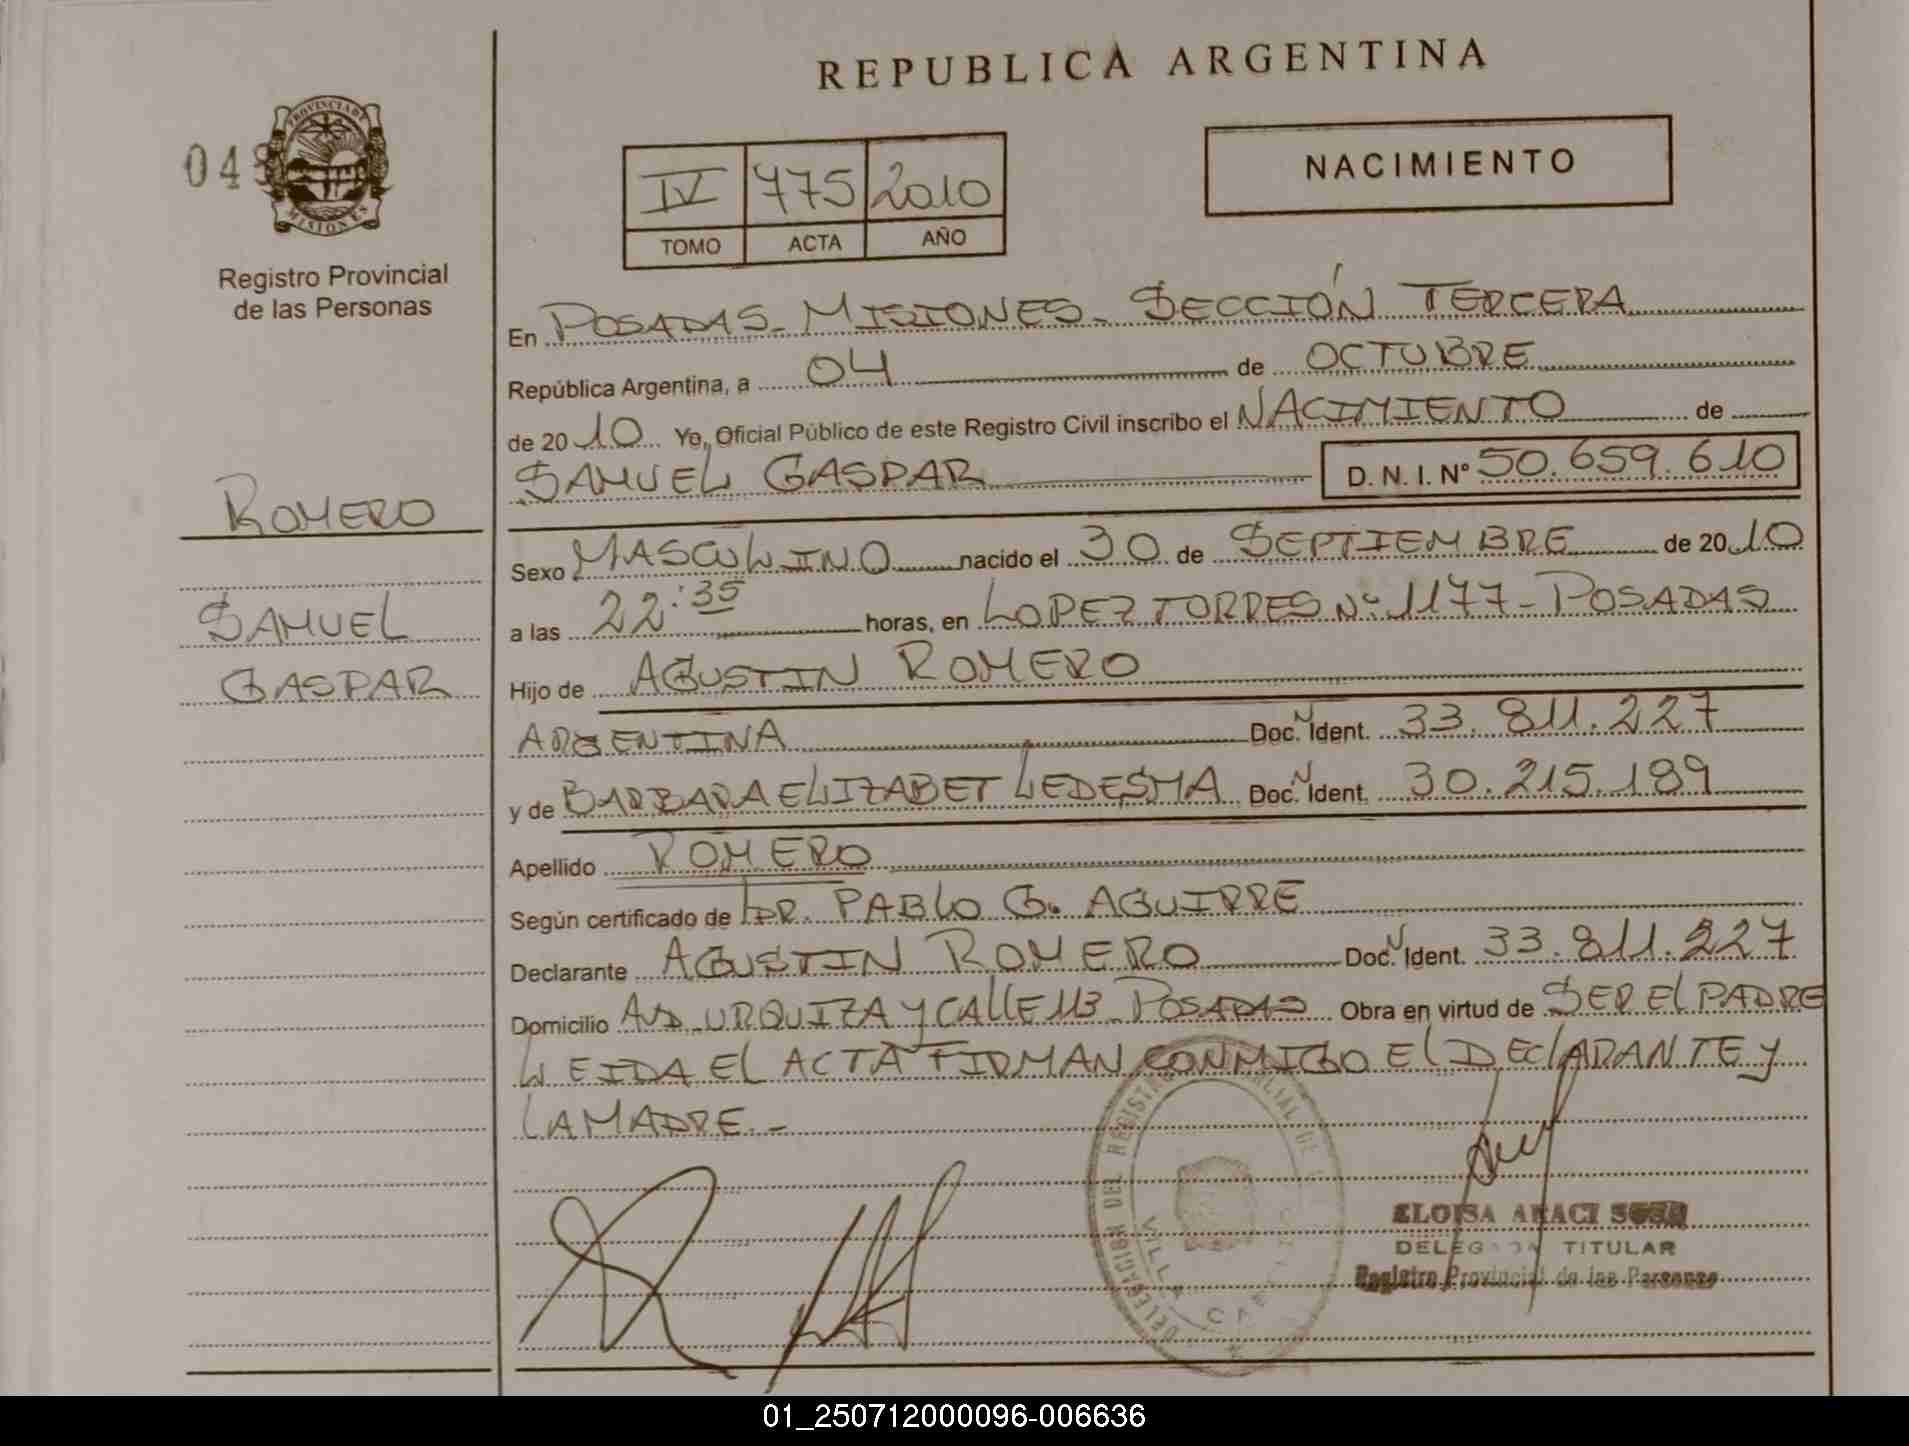 REPUBLICA ARGENTINA
04
PROVINCIA DE
MISIONES
Registro Provincial
de las Personas
IV 775 2010
TOMO ACTA AÑO
NACIMIENTO
En POSADAS - MISIONES - SECCIÓN TERCERA
República Argentina, a 04 de OCTUBRE
de 20 10 Yo, Oficial Público de este Registro Civil inscribo el NACIMIENTO de
SAMUEL GASPAR D. N. I. Nº 50.659.610
ROMERO
SAMUEL
GASPAR
Sexo MASCULINO nacido el 30 de SEPTIEMBRE de 20 10
a las 22:35 horas, en LOPEZ TORRES Nº 1177 - POSADAS
Hijo de AGUSTIN ROMERO
ARGENTINA Doc. Ident. 33.811.227
y de BARBARA ELIZABET LEDESMA Doc. Ident. 30.215.189
Apellido ROMERO
Según certificado de DR. PABLO G. AGUIRRE
Declarante AGUSTIN ROMERO Doc. Ident. 33.811.227
Domicilio AVD. URQUIZA Y CALLE 113 - POSADAS Obra en virtud de SER EL PADRE
LEIDA EL ACTA FIRMAN CONMIGO EL DECLARANTE Y
LA MADRE. -
DELEGACION DEL REGISTRO PROVINCIAL DE
VILLA
ELOISA ARACI SOSA
DELEGADA TITULAR
Registro Provincial de las Personas
01_250712000096-006636